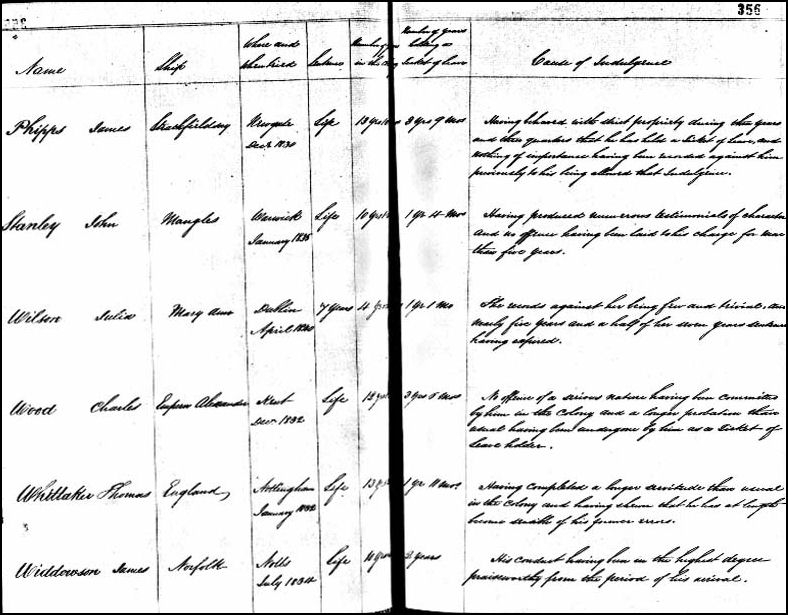 356
Name Ship Where and when tried Sentence Number of years in the Colony Number of years holding a Ticket of Leave Cause of Indulgence
Phipps James Strathfieldsay Newgate Life 13 yrs 3 yrs 9 Mos Having behaved with strict propriety during three years
Decr 1830 and three quarters that he has held a Ticket of Leave, and
nothing of importance having been recorded against him
previously to his being allowed that Indulgence.
Stanley John Mangles Warwick Life 10 yrs 1 yr 4 Mos Having produced numerous testimonials of character
January 1835 and no offence having been laid to his charge for more
than five years.
Wilson Julia Mary Ann Dublin 7 years 4 yrs 1 yr 1 Mo The records against her being few and trivial and
April 1840 nearly five years and a half of her seven years sentence
having expired.
Wood Charles Emperor Alexander Kent Life 12 yrs 3 yrs 5 Mos No offence of a serious nature having been committed
Decr 1832 by him in the Colony and a longer probation than
usual having been undergone by him as a Ticket of
Leave holder.
Whittaker Thomas England Nottingham Life 13 yrs 1 yr 11 Mos Having completed a longer servitude than usual
January 1832 in the Colony and having shewn that he has at length
become sensible of his former errors.
Widdowson James Norfolk Notts Life 10 years 2 years His conduct having been in the highest degree
July 1834 praiseworthy from the period of his arrival.